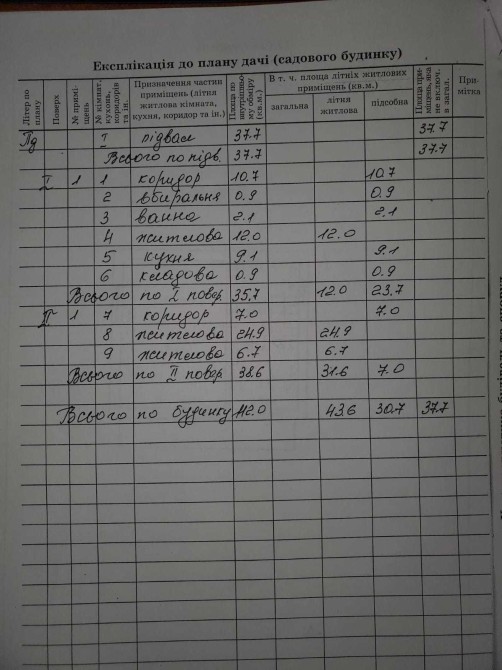 Експлікація до плану дачі (садового будинку)
Літер по плану | Поверх | № приміщень | № кімнат, кухонь, коридорів та ін. | Призначення частин приміщень (літня житлова кімната, кухня, коридор та ін.) | Площа по внутрішньому обміру (кв.м.) | В т. ч. площа літніх житлових приміщень (кв.м.) | загальна | літня житлова | підсобна | Площа приміщень, яка не включ. в загал. | Примітка
Пд I підвал 37.7 37.7
Всього по підв. 37.7 37.7
I 1 1 коридор 10.7 10.7
2 вбиральня 0.9 0.9
3 ванна 2.1 2.1
4 житлова 12.0 12.0
5 кухня 9.1 9.1
6 кладова 0.9 0.9
Всього по I повер. 35.7 12.0 23.7
II 1 7 коридор 7.0 7.0
8 житлова 24.9 24.9
9 житлова 6.7 6.7
Всього по II повер. 38.6 31.6 7.0
Всього по будинку 112.0 43.6 30.7 37.7